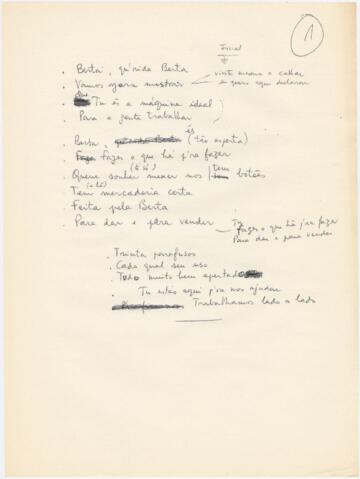 1
. Berta, qu'rida Berta
. Vamos agora mostrar
. Que Tu és a máquina ideal
. Para a gente trabalhar
. Berta, és (tão esperta)
. Fazes o que há p'ra fazer
(é só)
. Quem souber mexer nos teus botões
(é lá)
Tem mercadoria certa
. Feita pela Berta
. Para dar e para vender
Tu
fazes o que há p'ra fazer
Para dar e para vender
. Trinta parafusos
. Cada qual seu uso
. Tudo muito bem apertado
. Tu estás aqui p'ra nos ajudar
. Trabalhamos lado a lado